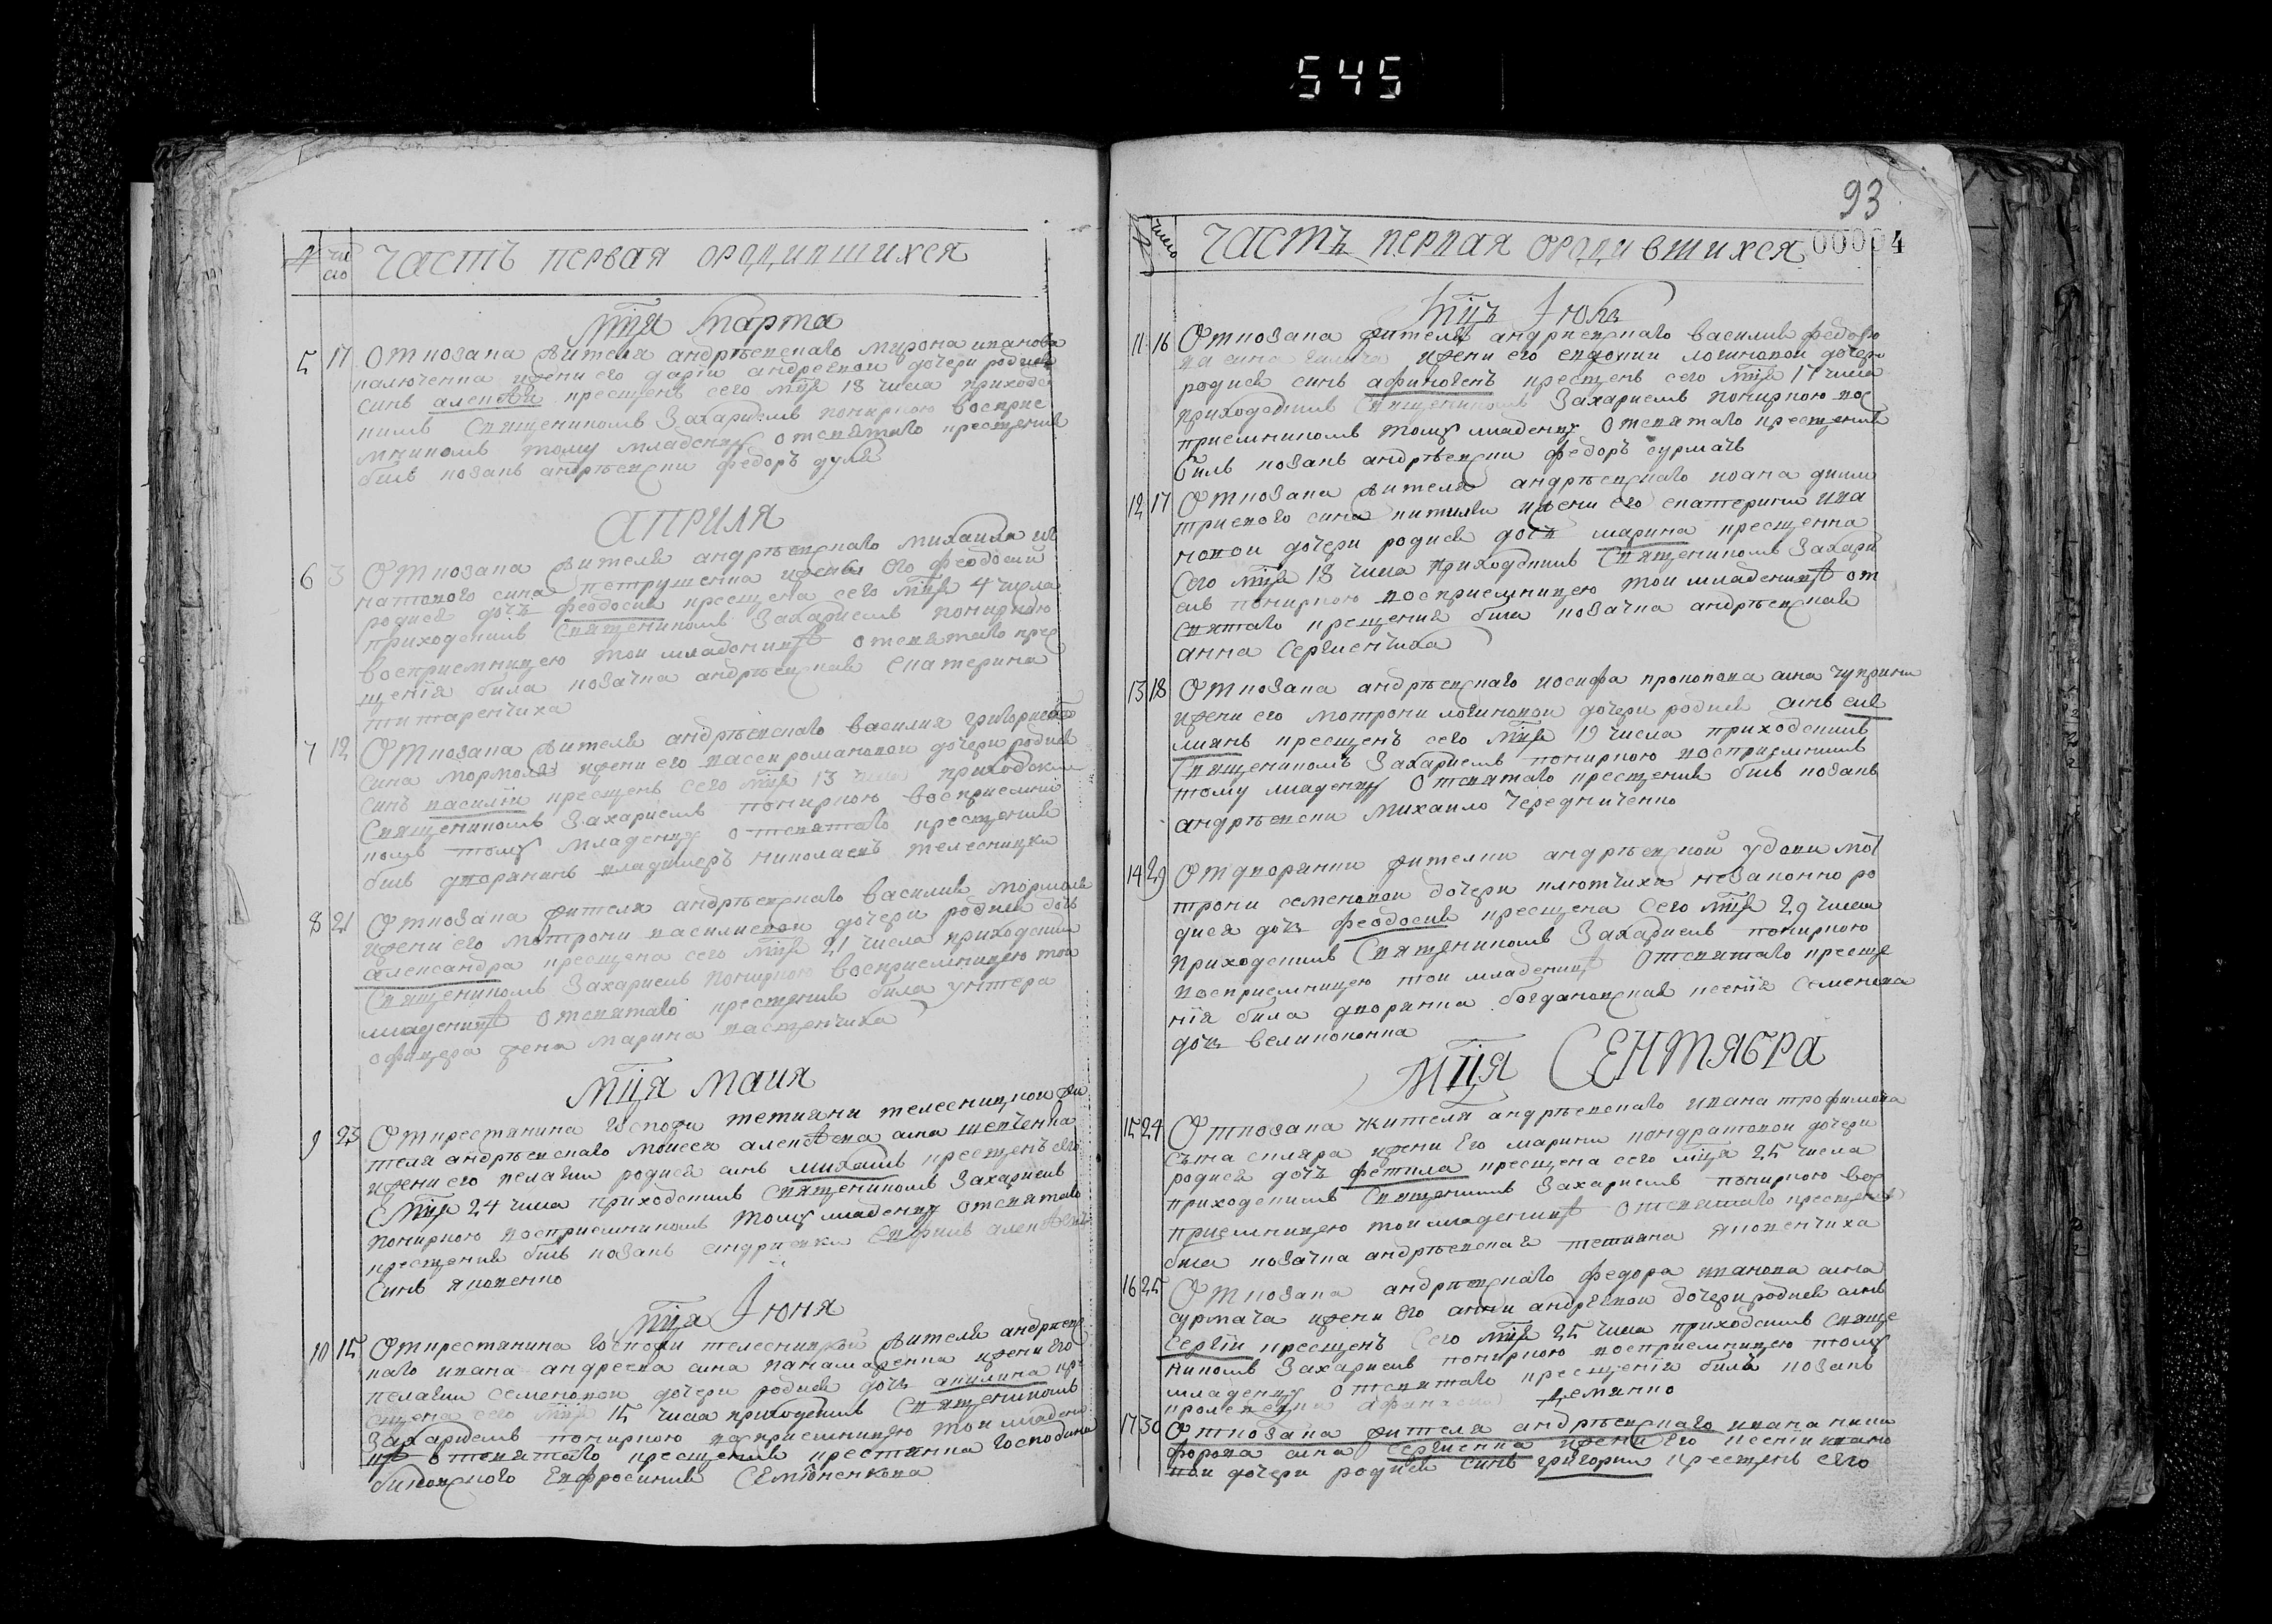 545
№ число Часть первая ородившихся
Мца Марта
5 17 От козака жителя андрѣевскаго мирона иванова
павлюченка жени его дарiи андреевой дочери родися
синъ алексѣй крещенъ сего мца 18 числа приходс
кимъ Священикомъ Захариемъ покиркою восприе
мникомъ тому младенцу отсвятаго крещения
билъ козакъ андрѣевски федоръ дуля
Априля
6 3 От козака жителя андрѣевскаго михаила иг
натового сина петрушенка жени его феодосии
родися дочъ феодосия крещена сего мца 4 числа
приходскимъ Священикомъ Захариемъ покиркою
восприемницею той младеницѣ отсвятаго кре
щенiя била козачка андрѣевская екатерина
титаренчиха
7 12 От козака жителя андрѣевскаго василия григориева
сина мормоля жени его васси романовой дочери родися
синъ василiй крещенъ сего мца 13 числа приходским
Священикомъ Захариемъ покиркою восприемни
комъ тому младенцу отсвятаго крещения
билъ дворянинъ владимеръ николаевъ телесницки
8 21 От козака жителя андрѣевскаго василия мормоля
жени его мотрони василиевой дочери родися дочъ
александра крещена сего мца 21 числа приходским
Священикомъ Захариемъ покиркою восприемницею той
младеницѣ отсвятаго крещения била унтера
офицера жена марина кастенчиха
Мца Маия
9 23 От крестянина Госпожи тетияни телесницкой жи
теля андрѣевскаго моисея алексѣева сина шевченка
жени его пелагии родися синъ михаилъ крещенъ сего
мца 24 числа приходскимъ Священикомъ Захариемъ
покиркою восприемникомъ тому младенцу отсвятаго
крещения билъ козакъ андриевски алексѣевъ
синъ яковенко
Мца Iюня
10 15 От крестянина Госпожи телесницкой жителя андриевс
каго ивана андреева сина панамаренка жени его
пелагии семеновой дочери родися дочъ акилина кре
щена сего мца 15 числа приходскимъ Священикомъ
Захариемъ покиркою восприемницею той младени
цѣ отсвятаго крещения крестянка Господина
биковского Евфросиния Семiоненкова
93
00004
№ число Часть первая ородившихся
Мцъ Iюль
11 16 От козака жителя андриевскаго василия федоро
ва сина жени его евдокии логиновой дочери
родися синъ афиногенъ крещенъ сего мца 17 числа
приходскимъ Священикомъ Захариемъ покиркою вос
приемникомъ тому младенцу отсвятаго крещения
билъ козакъ андрѣевски федоръ сурмачъ
12 17 От козака жителя андрѣевскаго иоана дими
триевого сина жени его екатерини ива
новой дочери родися дочъ марина крещенна
сего мца 18 числа приходскимъ Священикомъ Захари
емъ покиркою восприемницею той младеницѣ от
святаго крещения била козачка андрѣевская
анна Сергиенчиха
13 18 От козака андрѣевскаго иосифа прокопова сина чуприни
жени его мотрони логиновой дочери родися синъ еме
лиянъ крещенъ сего мца 19 числа приходскимъ
Священикомъ Захариемъ покиркою восприемником
тому младенцу отсвятаго крещения билъ козакъ
андрѣевски Михаило Чередниченко
14 29 От дворянки жителки андрѣевской удови мо
трони семеновой дочери плютчихи незаконно ро
дися дочъ феодосия крещена сего мца 29 числа
приходскимъ Священикомъ Захариемъ покиркою
восприемницею той младеницѣ отсвятаго креще
нiя била дворянка богдановская ксенiя Семенова
дочъ великоконка
Мца Сентября
15 24 От козака жителя андрѣевскаго ивана трофимова
сина скляра жени Его марини кондратовой дочери
родися дочъ фетила крещена сего мца 25 числа
приходскимъ Священикомъ Захариемъ покиркою вос
приемницею той младеницѣ отсвятаго крещения
била козачка андрѣевская тетияна яковенчиха
16 25 От козака андриевскаго федора иванова сина
сурмача жени Его анни андреевой дочери родися синъ
Сергiй крещенъ Сего мца 25 числа приходскимъ Свяще
никомъ Захариемъ покиркою восприемницею тому
младенцу отсвятаго крещенiя билъ козакъ
Демянко
17 30 От козака жителя андрѣевскаго ивана ники
форова сина Сергиенка жени Его ксенiи ивано
вой дочери родися синъ григорий крещенъ сего